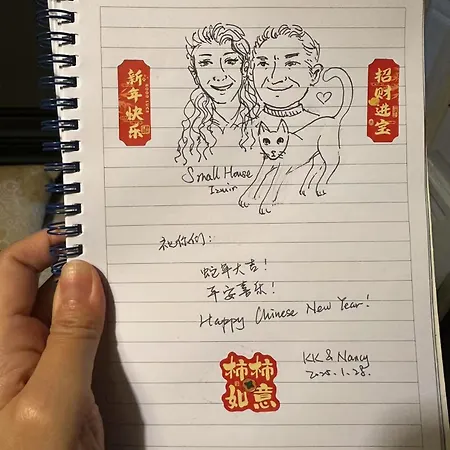 新年快乐
招财进宝
Small House
Izmir
祝你们:
蛇年大吉!
平安喜乐!
Happy Chinese New Year!
柿柿
如意
KK & Nancy
2025.1.28.